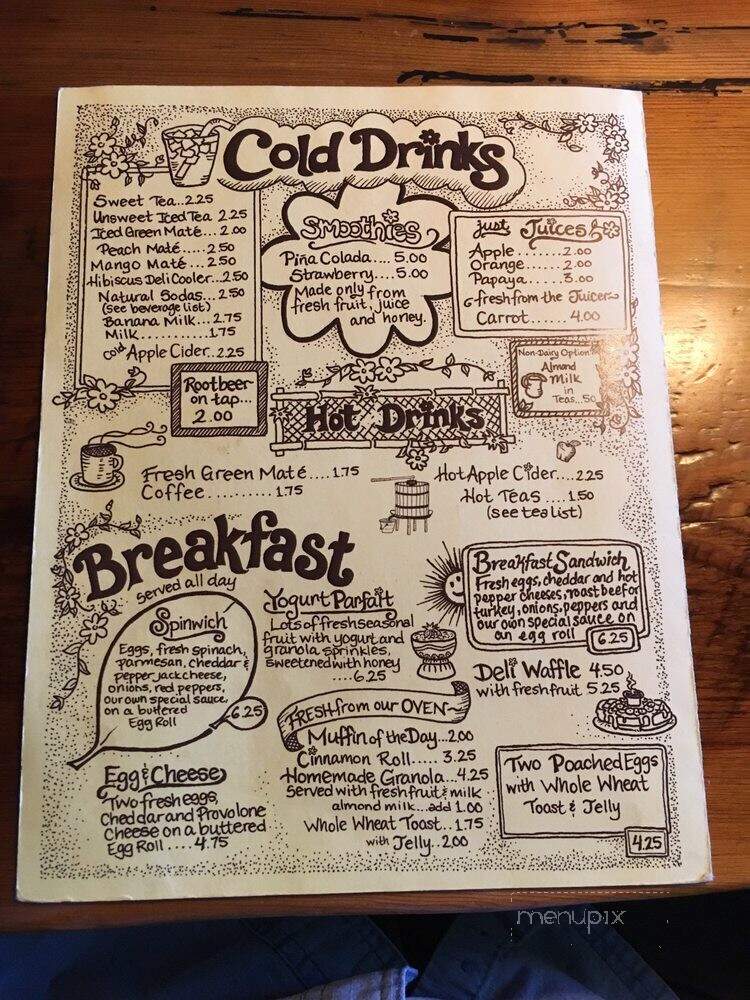 Cold Drinks
Sweet Tea..2.25
Unsweet Iced Tea 2.25
Iced Green Maté... 2.00
Peach Maté ..... 2.50
Mango Maté ... 2.50
Hibiscus Deli Cooler...2.50
Natural Sodas... 2.50
(see beverage list)
Banana Milk... 2.75
Milk............1.75
cold Apple Cider..2.25
Smoothies
Piña Colada.... 5.00
Strawberry.... 5.00
Made only from
fresh fruit, juice
and honey.
Just Juices
Apple........2.00
Orange.......2.00
Papaya.....3.00
fresh from the Juicer
Carrot...... 4.00
Rootbeer
on tap...
2.00
Non-Dairy Option
Almond
Milk
in
Teas...50
Hot Drinks
Fresh Green Maté.... 1.75
Coffee.......... 1.75
Hot Apple Cider....2.25
Hot Teas .... 1.50
(see tea list)
Breakfast
served all day
Spinwich
Eggs, fresh spinach,
parmesan, cheddar &
pepper jack cheese,
onions, red peppers,
our own special sauce
on a buttered
Egg Roll
6.25
Yogurt Parfait
Lots of fresh seasonal
fruit with yogurt and
granola sprinkles,
sweetened with honey
....6.25
Breakfast Sandwich
Fresh eggs, cheddar and hot
pepper cheeses, roast beef or
turkey, onions, peppers and
our own special sauce on
an egg roll
6.25
Deli Waffle 4.50
with fresh fruit 5.25
FRESH from our OVEN
Muffin of the Day...2.00
Cinnamon Roll..... 3.25
Homemade Granola...4.25
Served with fresh fruit & milk
almond milk...add 1.00
Whole Wheat Toast.. 1.75
with Jelly.. 2.00
Egg & Cheese
Two fresh eggs,
Cheddar and Provolone
Cheese on a buttered
Egg Roll .... 4.75
Two Poached Eggs
with Whole Wheat
Toast & Jelly
4.25
menupix